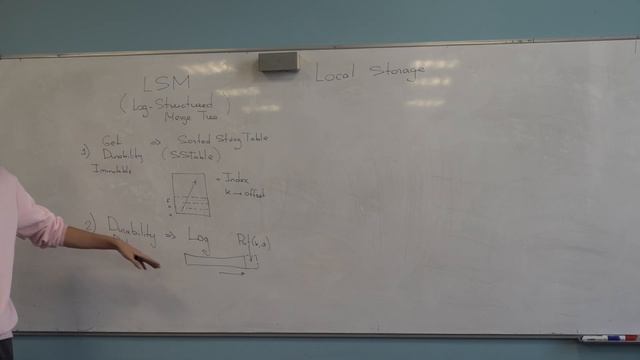 Local Storage
LSM
(Log-Structured)
Merge Tree
1) Get ⇒ Sorted String Table
Durability (SSTable)
Immutable
+ Index
k → offset
2) Durability ⇒ Log
Put(k,v)